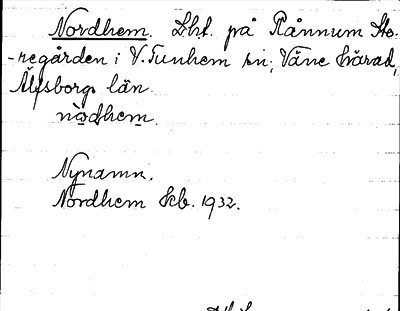 Nordhem. Lht. på Rånnum Sto-
-regården i V. Tunhem sn, Väne härad,
Älvsborgs län.
nòdhem.
Nynamn.
Nordhem Jeb. 1932.